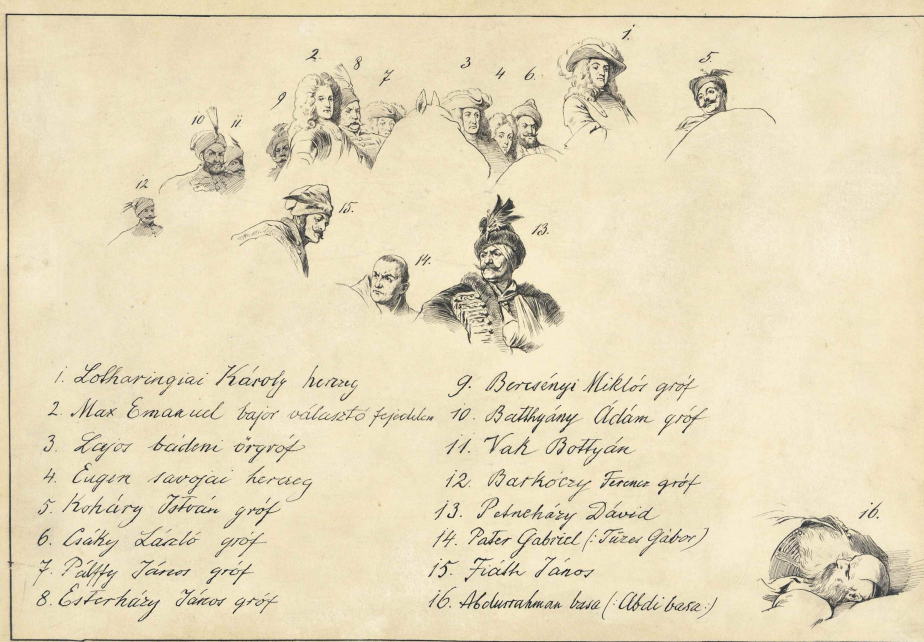 1.
2.
8
7
3
4
6.
5.
9
10
11
12
15.
14.
13.
1. Lotharingiai Károly herczeg
2. Max Emanuel bajor választó fejedelem
3 Lajos bádeni őrgróf
4. Eugen savojai herczeg
5. Koháry István gróf
6. Csáky László gróf
7. Pálffy János gróf
8. Esterházy János gróf
9. Bercsényi Miklós gróf
10. Batthyány Ádám gróf
11. Vak Bottyán
12. Barkóczy Ferencz gróf
13. Petneházy Dávid
14. Pater Gabriel (: Tüzes Gábor)
15. Fiáth János
16. Abdurrahman basa (: Abdi basa :)
16.